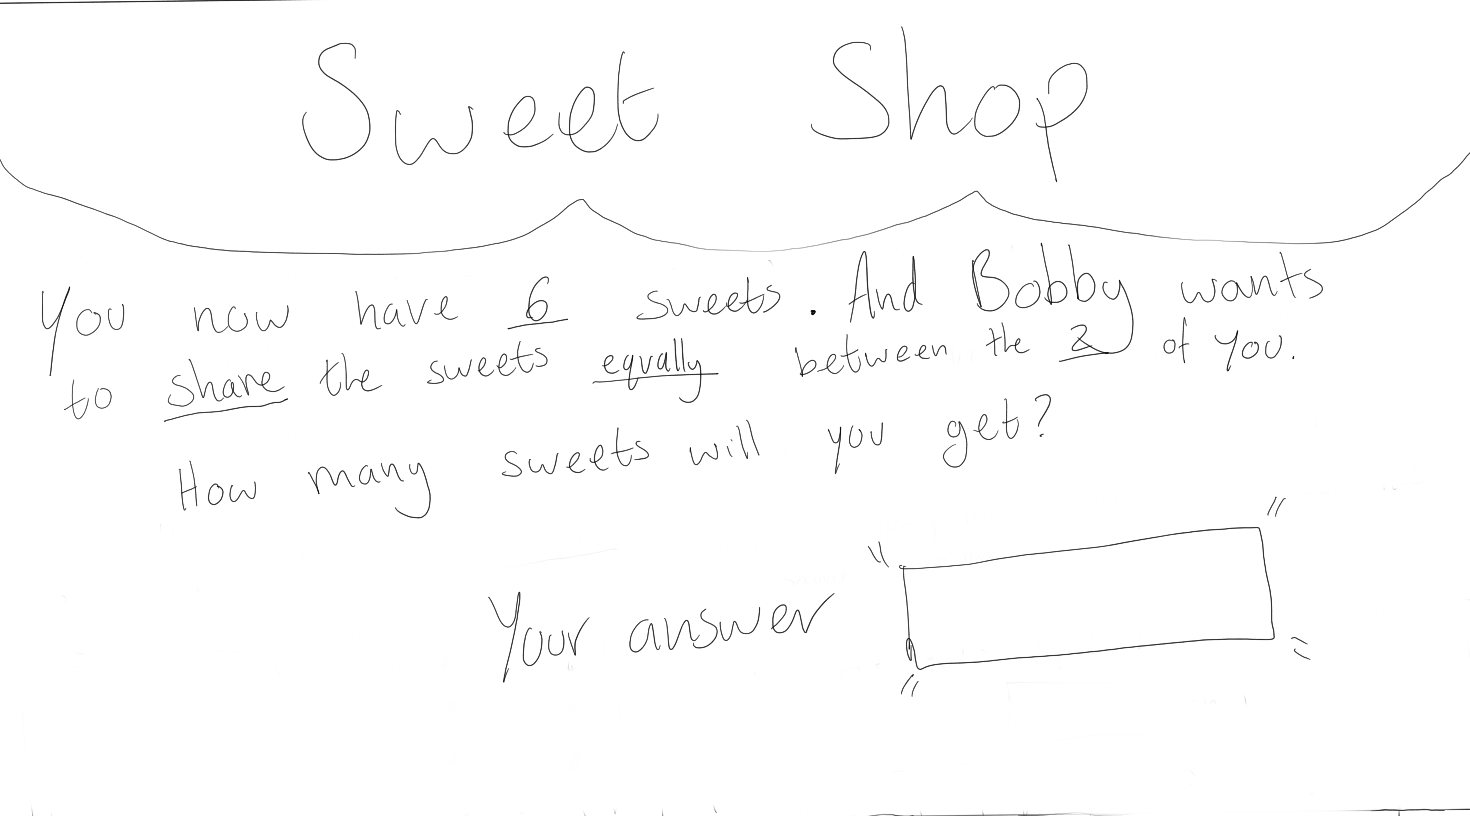 Sweet Shop
You now have 6 sweets. And Bobby wants
to share the sweets equally between the 2 of you.
How many sweets will you get?
Your answer